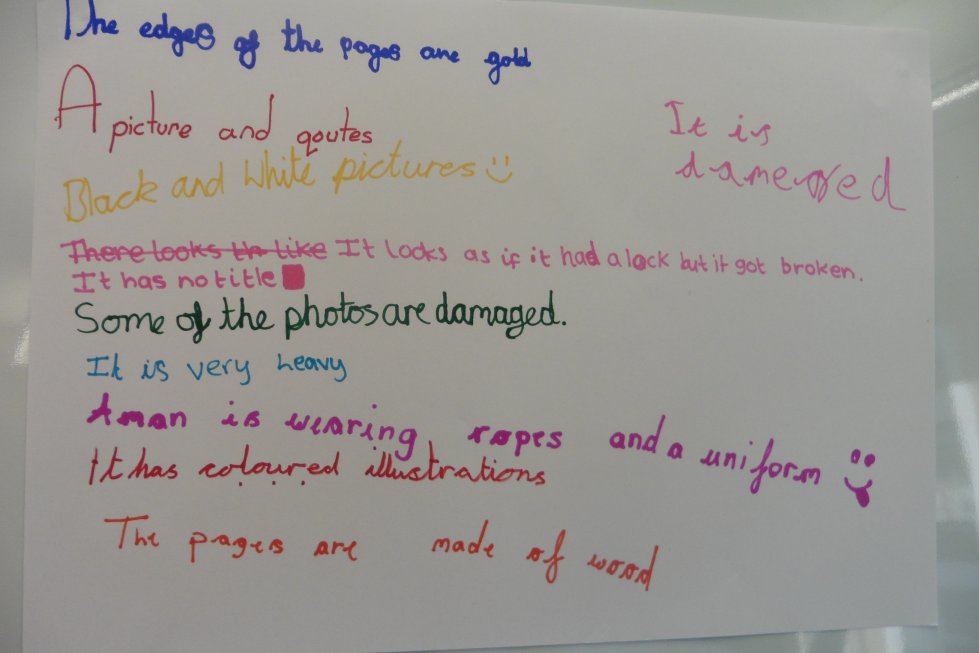 The edges of the pages are gold
A picture and qoutes
It is
damerged
Black and White pictures
There looks th like It looks as if it had a lock but it got broken.
It has no title
Some of the photos are damaged.
It is very heavy
A man is wearing ropes and a uniform
It has coloured illustrations
The pages are made of wood